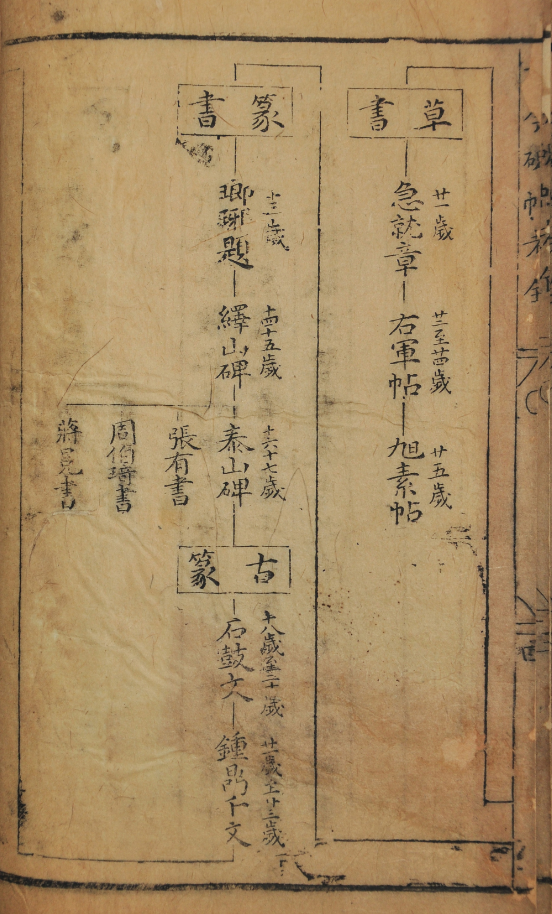 草書
急就章 廿一歲
右軍帖 廿二至廿四歲
旭素帖 廿五歲
篆書
瑯琊題 十三歲
繹山碑 十四十五歲
泰山碑 十六十七歲
張有書
周伯琦書
蔣冕書
古篆
石鼓文 十八歲至二十歲
鍾鼎千文 廿一歲至廿三歲